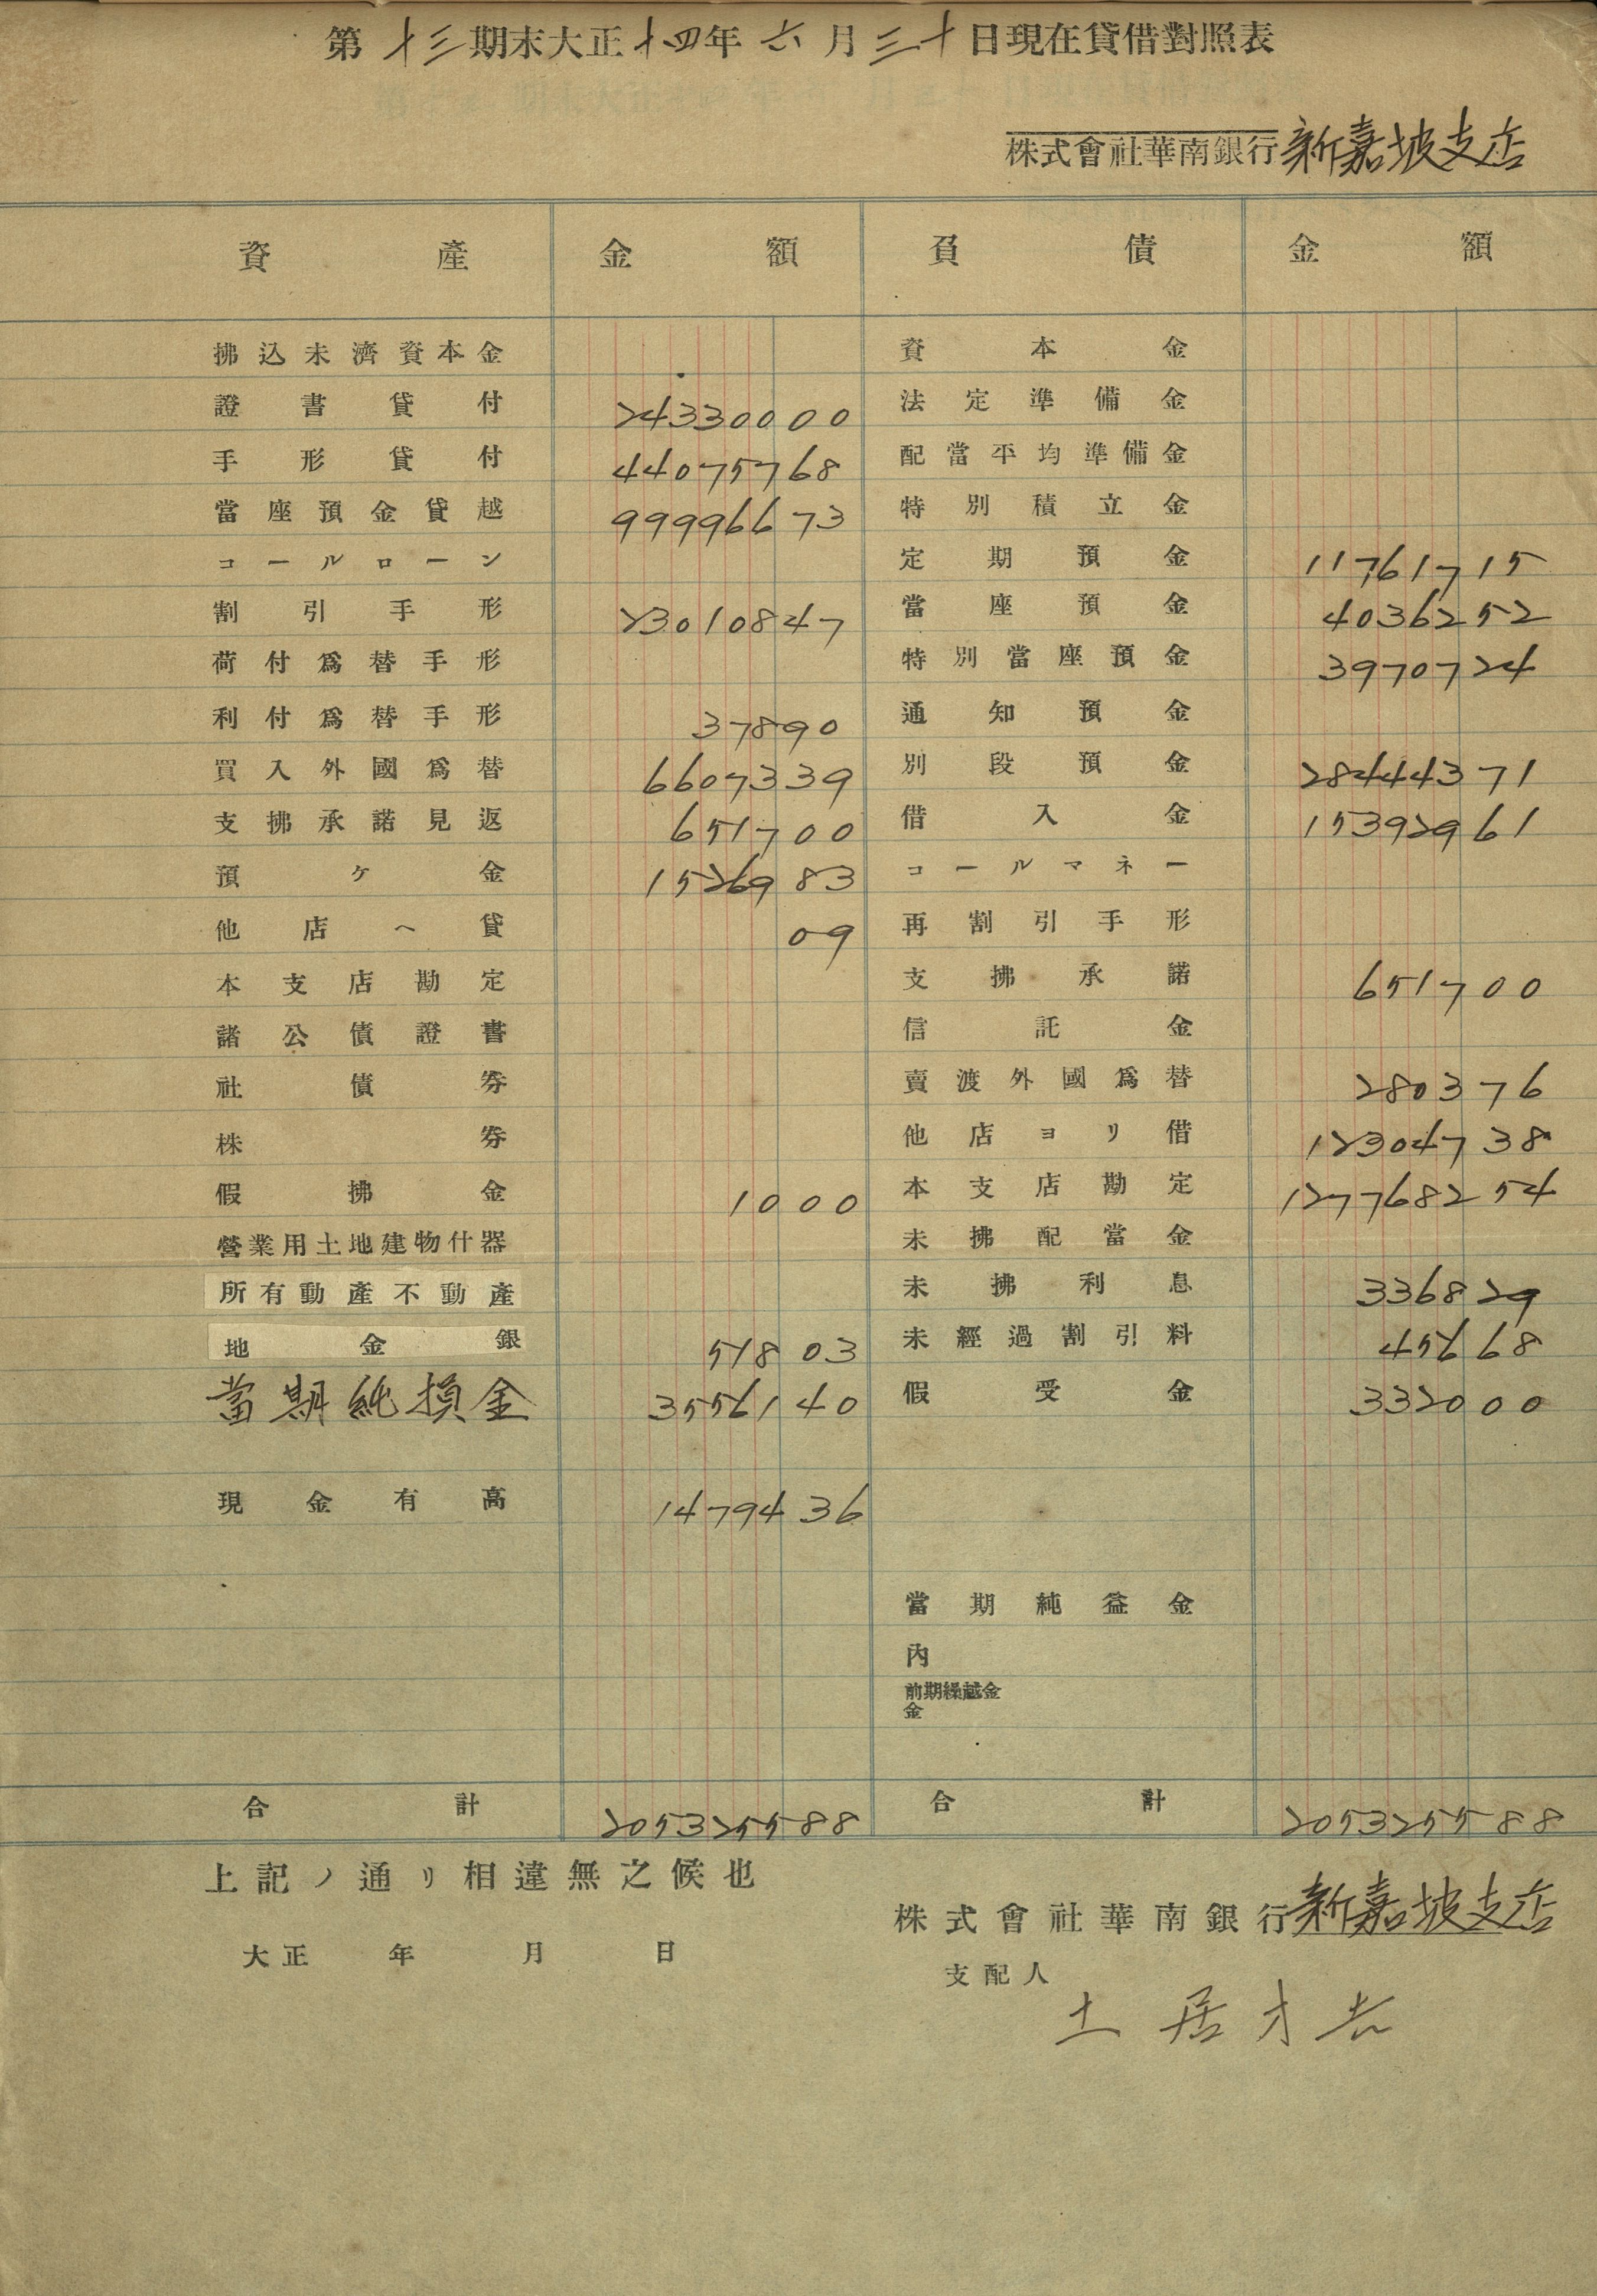 第十三期末大正十四年六月三十日現在貸借對照表
株式會社華南銀行新嘉坡支店
資產 金額 負債 金額
拂込未濟資本金 資本金
證書貸付 24330000 法定準備金
手形貸付 44075768 配當平均準備金
當座預金貸越 99996673 特別積立金
コールローン 定期預金 11761715
割引手形 23010847 當座預金 4036252
荷付爲替手形 特別當座預金 3970724
利付爲替手形 37890 通知預金
買入外國爲替 6607339 別段預金 28444371
支拂承諾見返 651700 借入金 15392961
預ケ金 1526983 コールマネー
他店へ貸 09 再割引手形
本支店勘定 支拂承諾 651700
諸公債證書 信託金
社債券 賣渡外國爲替 280376
株券 他店ヨリ借 12304738
假拂金 1000 本支店勘定 127768254
營業用土地建物什器 未拂配當金
所有動產不動產 未拂利息 336829
地金銀 51803 未經過割引料 45668
當期純損金 3556140 假受金 332000
現金有高 1479436
當期純益金
內
前期繰越金
金
合計 205325588 合計 205325588
上記ノ通リ相違無之候也
株式會社華南銀行新嘉坡支店
大正 年 月 日
支配人
土居才吉